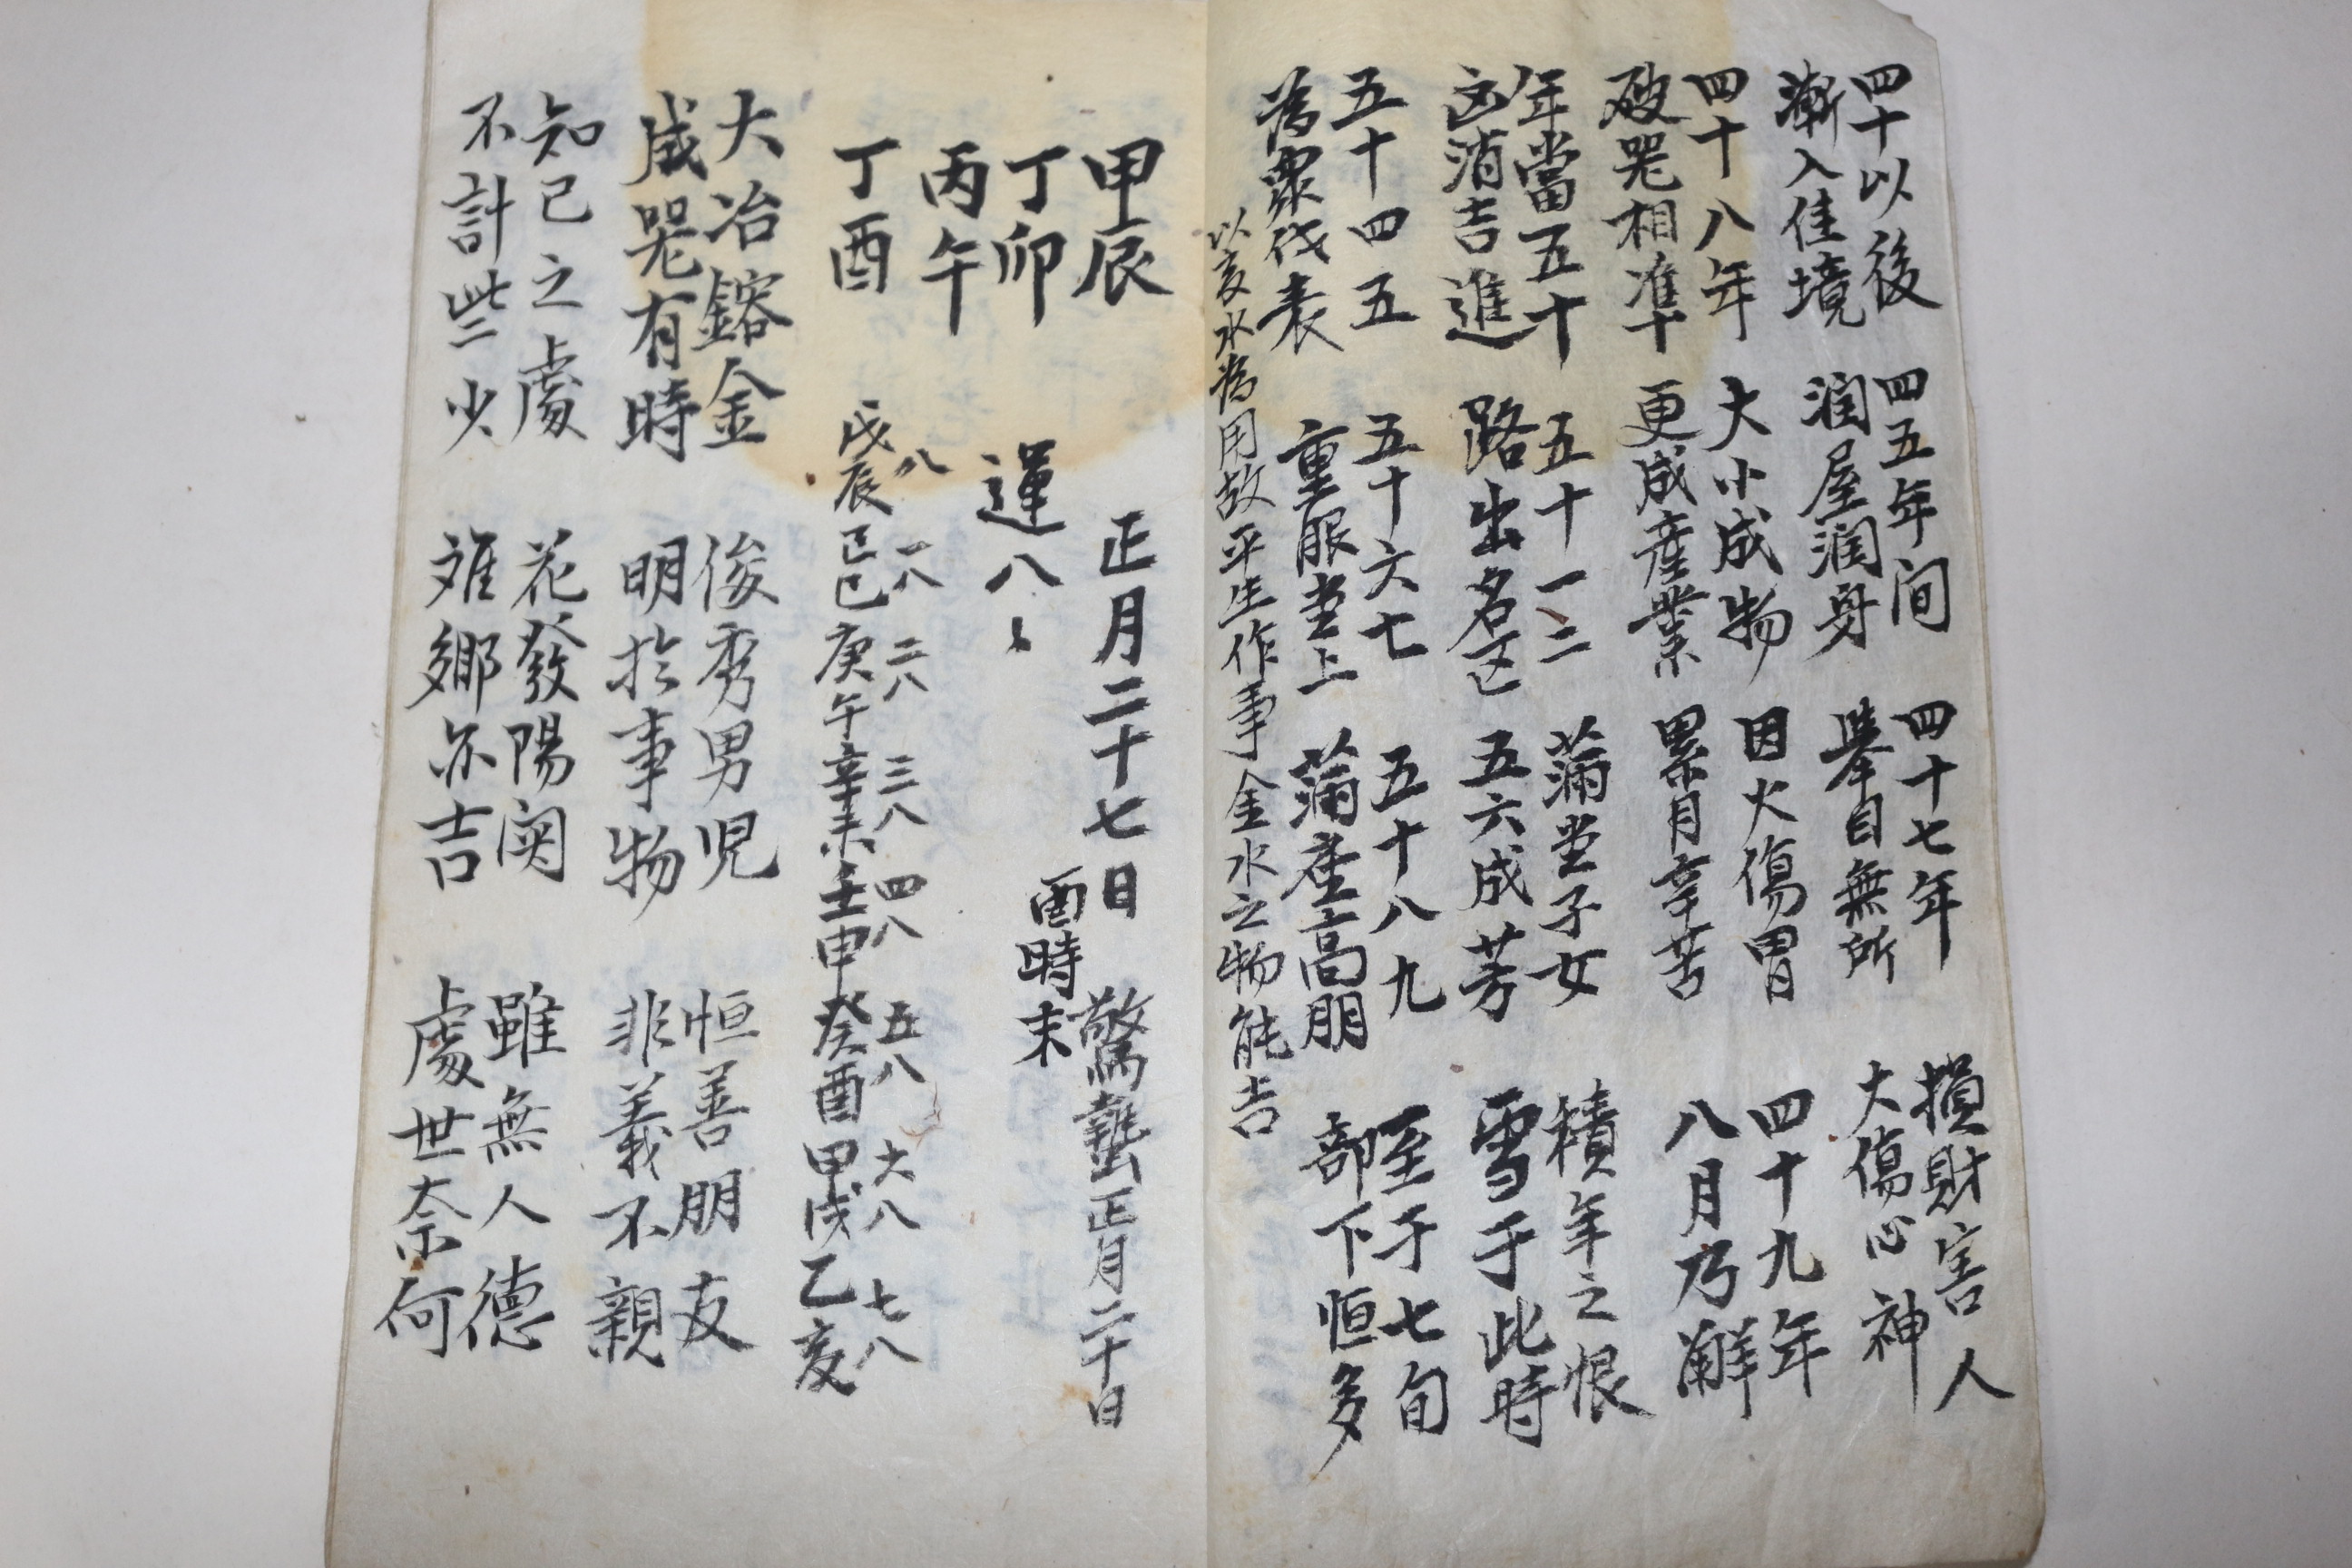 四十以後 四五年间 四十七年 損財害人
漸入佳境 润屋润身 擧目無所 大傷心神
四十八年 大小成物 因火傷胃 四十九年
破器相準 更成産業 累月辛苦 八月乃觧
年當五十 五十一二 滿堂子女 積年之恨
凶消吉進 路出名区 五六成芳 雪于此時
五十四五 五十六七 五十八九 至于七旬
為衆代表 重服堂上 滿座高朋 部下恒多
以亥水為用故平生作事金水之物能吉
甲辰 正月二十七日 驚蟄正月二十日
丁卯 酉時末
丙午 運八〻
丁酉
八 一八 二八 三八 四八 五八 六八 七八
戊辰 己巳 庚午 辛未 壬申 癸酉 甲戌 乙亥
大冶鎔金 俊秀男児 恒善朋友
成器有時 明於事物 非義不親
知己之處 花發陽 雖無人德
不計些少 鄉亦吉 處世奈何